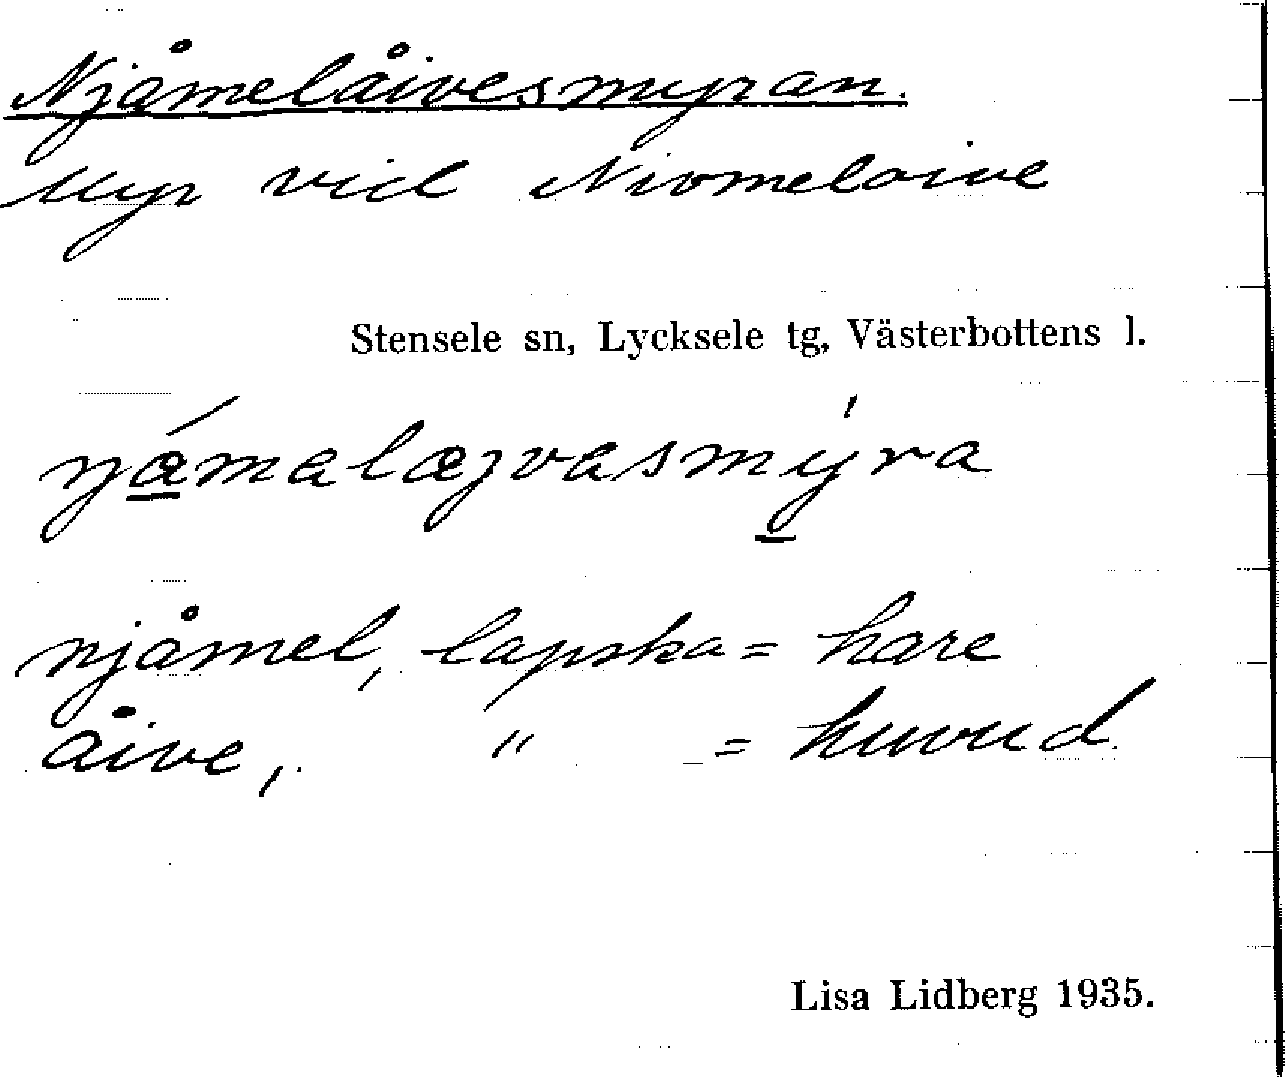 Njåmelåivesmyran.
Myr vid Niomeloive
Stensele sn, Lycksele tg, Västerbottens l.
njåmel, lapska = hare
åive, " = huvud.
Lisa Lidberg 1935.